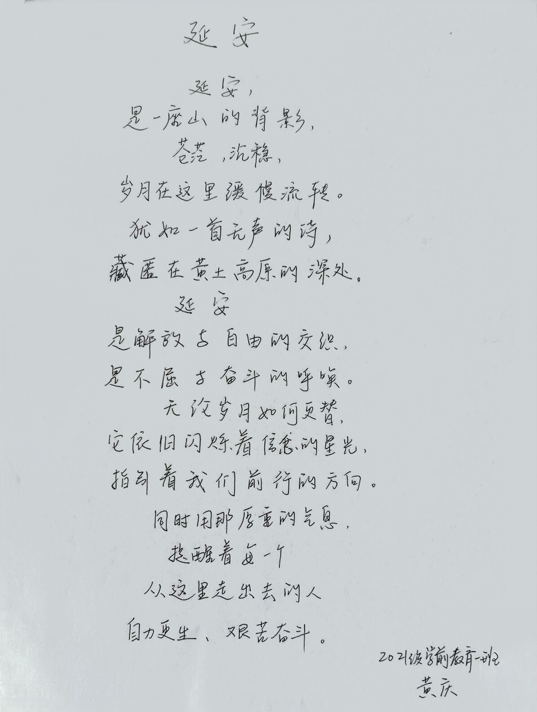 延安
延安,
是一座山的背影,
苍茫,沉稳,
岁月在这里缓慢流转。
犹如一首无声的诗,
藏匿在黄土高原的深处。
延安
是解放与自由的交织,
是不屈与奋斗的呼唤。
无论岁月如何更替,
它依旧闪烁着信念的星光,
指引着我们前行的方向。
同时用那厚重的气息,
提醒着每一个
从这里走出去的人
自力更生、艰苦奋斗。
2021级学前教育一班
黄庆